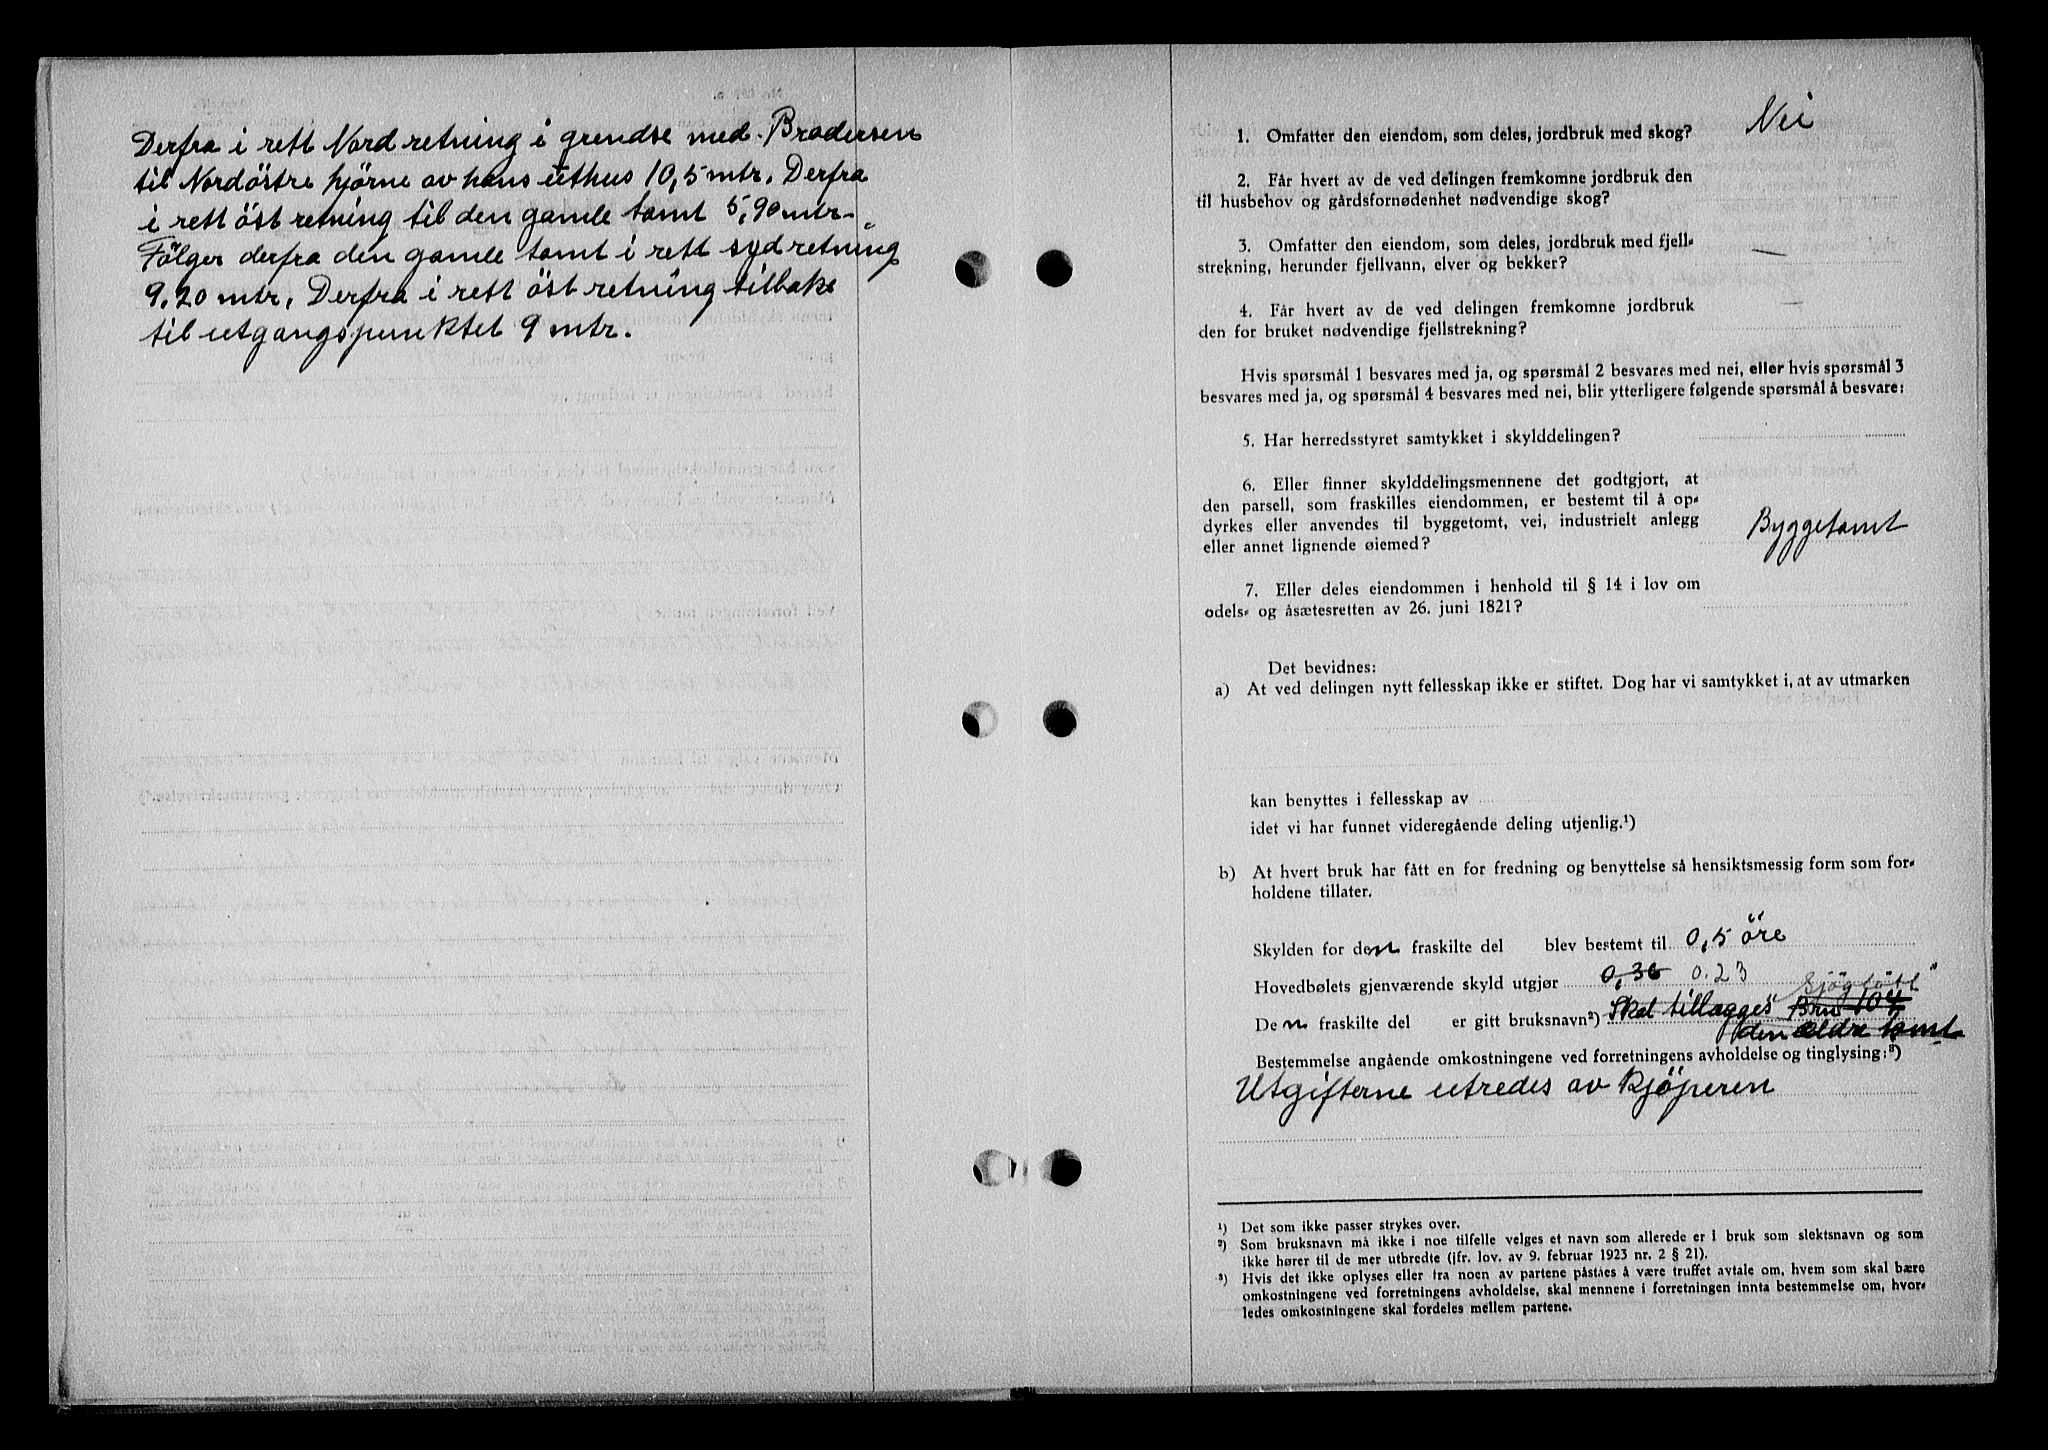 Derfra i rett Nord retning i grendse med Brodersen
til Nordöstre hjörne av hans uthus 10,5 mtr. Derfra
i rett öst retning til den gamle tomt 5,90 mtr.
Fölger derfra den gamle tomt i rett syd retning
9,20 mtr. Derfra i rett öst retning tilbake
til utgangspunktet 9 mtr.
1. Omfatter den eiendom, som deles, jordbruk med skog? Nei
2. Får hvert av de ved delingen fremkomne jordbruk den
til husbehov og gårdsfornødenhet nødvendige skog?
3. Omfatter den eiendom, som deles, jordbruk med fjell-
strekning, herunder fjellvann, elver og bekker? —
4. Får hvert av de ved delingen fremkomne jordbruk —
den for bruket nødvendige fjellstrekning?
Hvis spørsmål 1 besvares med ja, og spørsmål 2 besvares med nei, eller hvis spørsmål 3
besvares med ja, og spørsmål 4 besvares med nei, blir ytterligere følgende spørsmål å besvare:
5. Har herredsstyret samtykket i skylddelingen?
6. Eller finner skylddelingsmennene det godtgjort, at
den parsell, som fraskilles eiendommen, er bestemt til å op-
dyrkes eller anvendes til byggetomt, vei, industrielt anlegg Byggetomt
eller annet lignende øiemed?
7. Eller deles eiendommen i henhold til § 14 i lov om
odels- og åsætesretten av 26. juni 1821?
Det bevidnes:
a) At ved delingen nytt fellesskap ikke er stiftet. Dog har vi samtykket i, at av utmarken
kan benyttes i fellesskap av
idet vi har funnet videregående deling utjenlig.¹)
b) At hvert bruk har fått en for fredning og benyttelse så hensiktsmessig form som for-
holdene tillater.
Skylden for den fraskilte del blev bestemt til 0,5 öre
Hovedbølets gjenværende skyld utgjør 0,36 0.23
Den fraskilte del er gitt bruksnavn²) Skal tillægges Brn 104 "Sjögløtt"
den ældre tomt
Bestemmelse angående omkostningene ved forretningens avholdelse og tinglysing:³)
Utgifterne utredes av kjöperen
¹) Det som ikke passer strykes over.
²) Som bruksnavn må ikke i noe tilfelle velges et navn som allerede er i bruk som slektsnavn og som
ikke hører til de mer utbredte (jfr. lov. av 9. februar 1923 nr. 2 § 21).
³) Hvis det ikke oplyses eller fra noen av partene påståes å være truffet avtale om, hvem som skal bære
omkostningene ved forretningens avholdelse, skal mennene i forretningen innta bestemmelse om, hvor-
ledes omkostningene skal fordeles mellem partene.